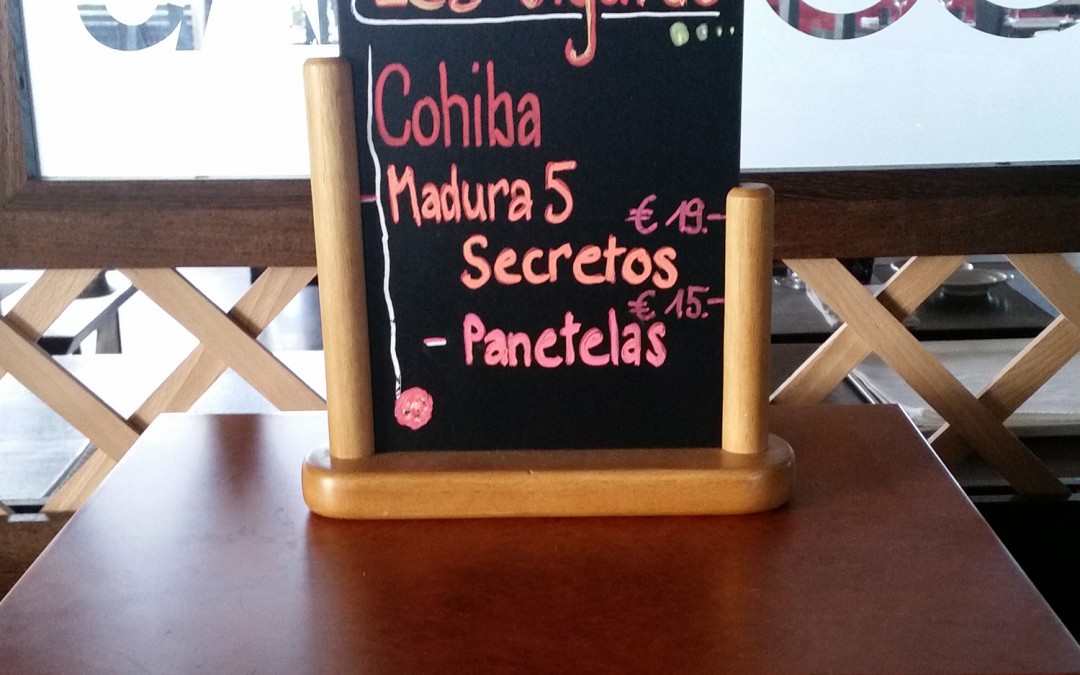 Les
Cohiba
Madura 5
€ 19.-
Secretos
€ 15.-
- Panetelas